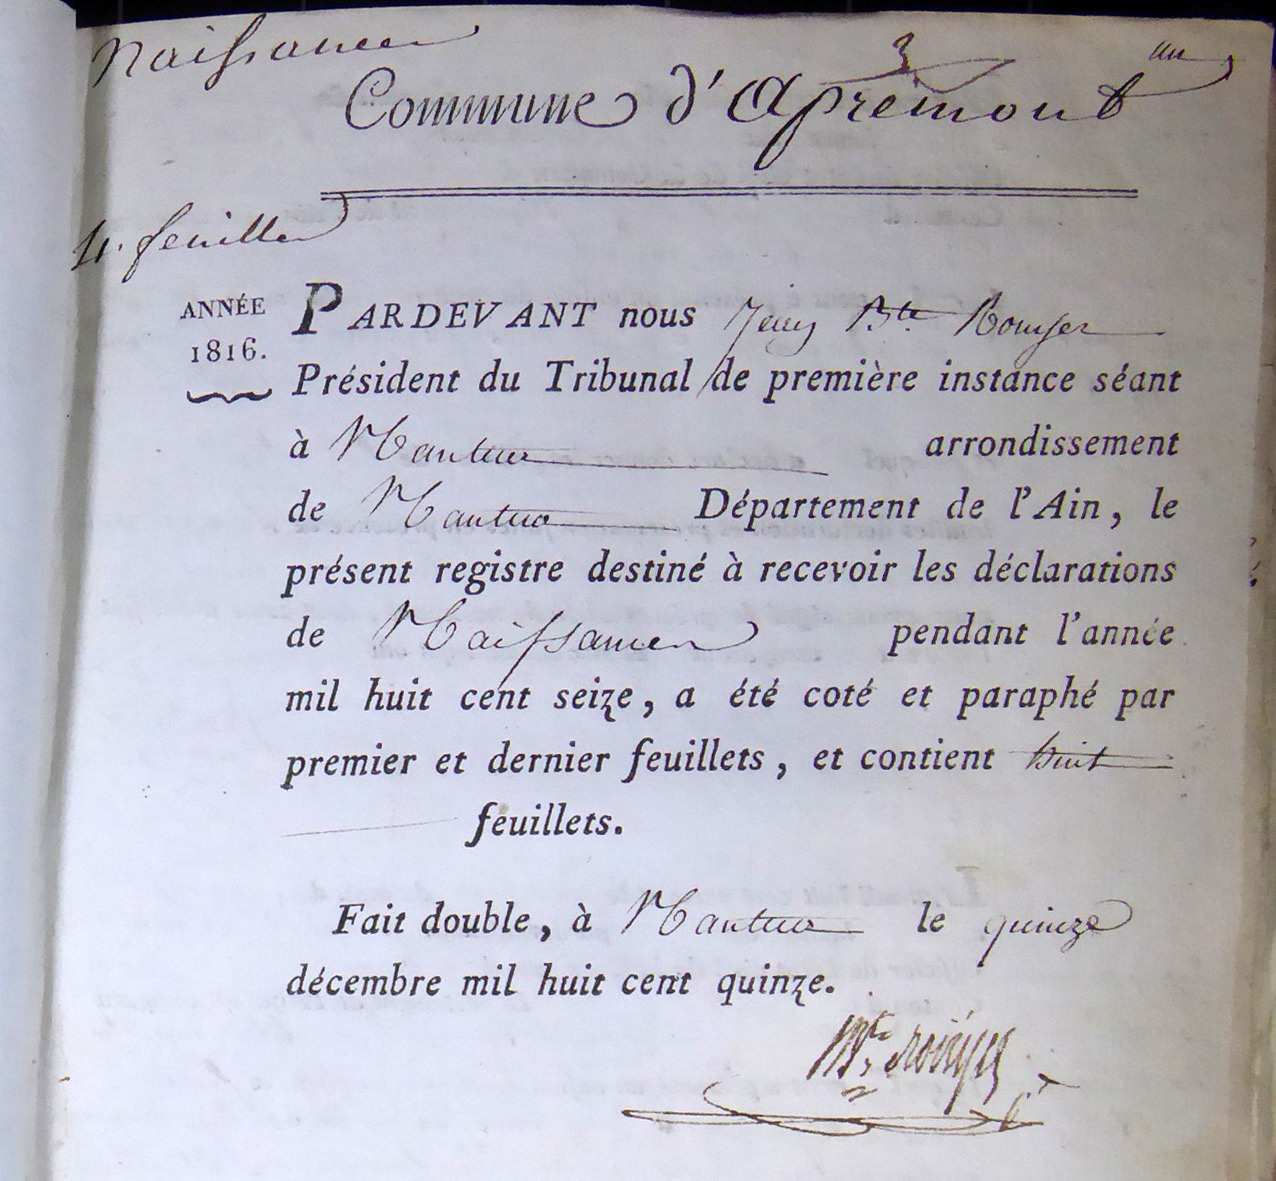 Naissances
3
Commune d'Apremont
4. feuilles
ANNÉE
1816.
PARDEVANT nous Jean Bte Rouyer
Président du Tribunal de première instance séant
à Nantua arrondissement
de Nantua Département de l'Ain, le
présent registre destiné à recevoir les déclarations
de Naissances pendant l'année
mil huit cent seize, a été coté et paraphé par
premier et dernier feuillets, et contient huit
feuillets.
Fait double, à Nantua le quinze
décembre mil huit cent quinze.